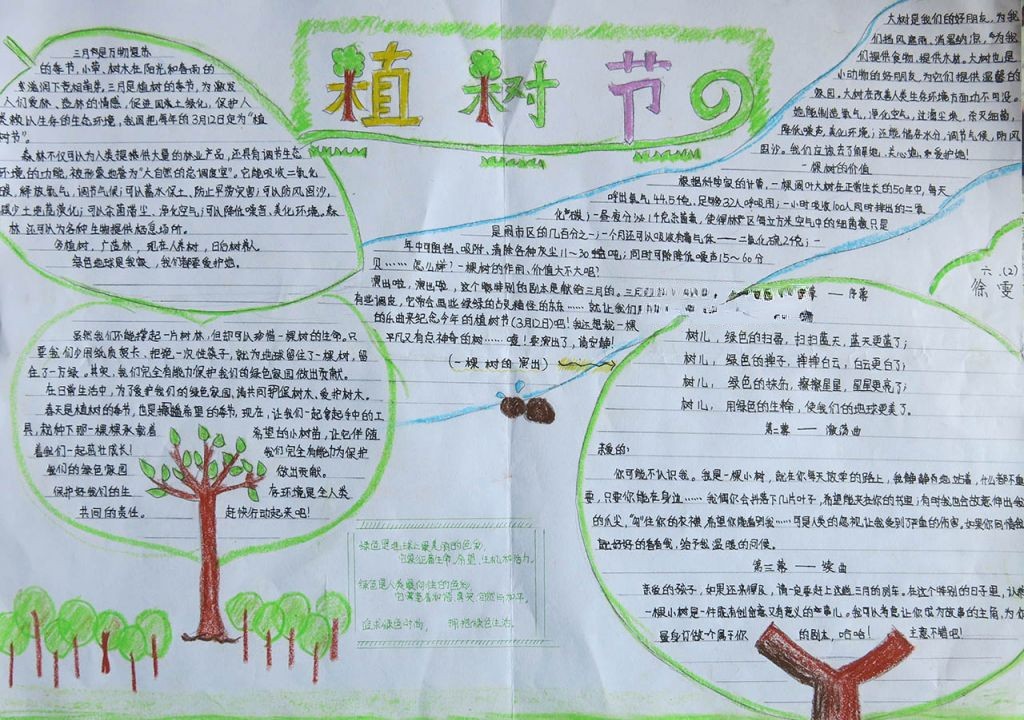 植树节
三月份是万物复苏
的季节,小草、树木在阳光和春雨的
滋润下茁壮萌芽。三月是植树的季节,为激发
人们爱林、造林的情感,促进国土绿化,保护人
类赖以生存的生态环境,我国把每年的3月12日定为“植
树节”。
森林不仅可以为人类提供大量的林业产品,还具有调节生态
环境的功能,被形象地誉为“大自然的总调度室”。它能吸收二氧化
碳、解放氧气、调节气候;可以蓄水保土、防止旱涝灾害;可以防风固沙、
减少土地荒漠化;可以杀菌滞尘、净化空气;可以降低噪音、美化环境。森
林还可以为各种生物提供栖息场所。
多植树、广造林,现在人养树,日后树养人。
绿色地球是我家,我们都要爱护她。
大树是我们的好朋友,为我
们挡风遮雨、消暑纳凉,为我
们提供食物、提供木材。大树也是
小动物的好朋友,为它们提供温馨的
家园。大树在改善人类生存环境方面功不可没。
她能制造氧气,净化空气,过滤尘埃,杀灭细菌,
降低噪声,美化环境;还能储存水分,调节气候,防风
固沙。我们应该去了解她,关心她和爱护她!
一棵树的价值
根据科学家的计算,一棵阔叶大树在正常生长的50年中,每天
呼出氧气44.5千克,足够32人呼吸用;一小时吸收100人同时排出的二氧
化碳;一昼夜分泌1千克杀菌素,使得林区每立方米空气中的细菌数只是
是闹市区的几百分之一;一个月还可以吸收有毒气体——二氧化硫24克;一
年中可阻挡、吸附、清除各种灰尘11~30吨;同时可除降低噪声15~60分
贝……怎么样!一棵树的作用、价值大不大呢!
演出啦,演出啦,这个特别的剧本是献给三月的。
有些调皮,它带会画些绿绿的古灵精怪的东东……就让我们
的乐曲来纪念今年的植树节(3月12日)吧!我还想栽一棵
平凡又有点神奇的树……嘘!要演出了,请安静!
(一棵树的演出)
六.(2)
徐雯
虽然我们不能撑起一片树林,但却可以珍惜一棵树的生命。只
要我们少用纸质贺卡、拒绝一次性筷子,就为地球留住了一棵树,留
住了一方绿。其实,我们完全有能力保护我们的绿色家园做出贡献。
在日常生活中,为了爱护我们的绿色家园,请共同护促树木、爱护树木。
春天是植树的季节,也是播撒希望的季节,现在,让我们一起拿起手中的工
具,栽种下那一棵棵承载着 希望的小树苗,让它伴随
着我们一起茁壮成长! 我们完全有能力为保护
我们的绿色家园 做出贡献。
保护好我们的生 存环境是全人类
共同的责任。 赶快行动起来吧!
绿色是地球上最美丽的色彩,
它象征着生命、希望、生机和活力。
绿色是人类最向往的色彩,
追求绿色时尚, 拥抱绿色生活。
——序幕
树儿,绿色的扫帚,扫扫蓝天,蓝天更蓝了;
树儿,绿色的掸子,掸掸白云,白云更白了;
树儿,绿色的抹布,擦擦星星,星星更亮了;
树儿,用绿色的生命,使我们的地球更美了。
第二幕——激荡曲
亲爱的:
你可能不认识我。我是一棵小树,就在你每天放学的路上,我静静有地站着,什么都不重
要,只要你能在身边……我偶尔会掉落下几片叶子,希望能夹在你的书里;有时我也会故意伸出我
的爪尖,“勾”住你的衣襟,希望你能看到我……可是人类的忽视,让我受到了严重的伤害。如果你同情我
好好的看看我,给予我温暖的问候。
第三幕——续曲
亲爱的孩子,如果还来得及,请一定要赶上这趟三月的列车。在这个特别的日子里,认养
一棵小树是一件既有创意又有意义的事儿。我可以考虑让你成为故事的主角,为你
量身订做一个属于你 的剧本,哈哈! 主意不错吧!